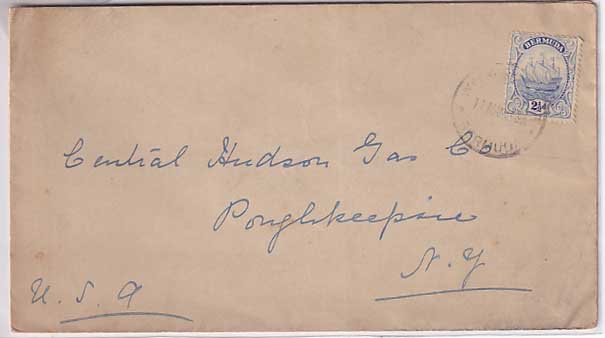 BERMUDA
2½
Central Hudson Gas Co
Poughkeepsie
N.Y
U.S.A